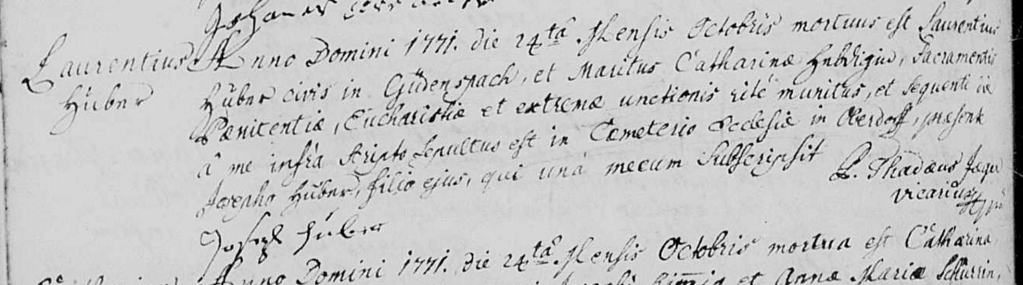 Johanes
Laurentius Anno Domini 1771. die 24ta Mensis Octobris mortuus est Laurentius
Hüber Hüber civis in Güdenspach, et Maritus Catharinæ Hebdigue, Sacramentis
Pænitentiæ, Eucharistiæ et extremæ unctionis ritè munitus, et sequenti die
à me infra scripto sepultus est in Cæmeterio Ecclesiæ in Oberdorff, præsente
Josepho Hüber, filio ejus, qui unà mecum subscripsit P. Thadæus
vicarius
Joseph Hüber
Anno Domini 1771. die 24ta Mensis Octobris mortua est Catharina
et Annæ Mariæ Schurrin,